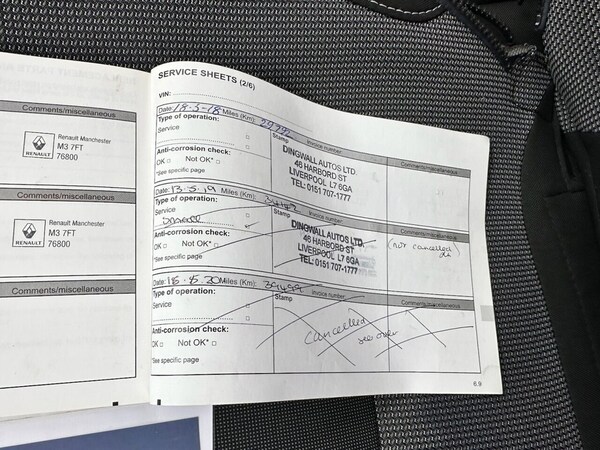 Comments/miscellaneous
RENAULT
Renault Manchester
M3 7FT
76800
Comments/miscellaneous
RENAULT
Renault Manchester
M3 7FT
76800
Comments/miscellaneous
SERVICE SHEETS (2/6)
VIN:
Date: 18-5-18 Miles (Km):
Type of operation:
Service
Stamp
Invoice number
Comments/miscellaneous
Anti-corrosion check:
OK Not OK*
*See specific page
DINGWALL AUTOS LTD.
46 HARBORD ST
LIVERPOOL L7 6GA
TEL: 0151 707-1777
Date: 13.5.19 Miles (Km):
Type of operation:
Service
Stamp
Invoice number
Comments/miscellaneous
Anti-corrosion check:
OK Not OK*
*See specific page
DINGWALL AUTOS LTD.
46 HARBORD ST
LIVERPOOL L7 6GA
TEL: 0151 707-1777
(not cancelled
Date: 18.5.20 Miles (Km): 39499
Type of operation:
Service
Stamp
Invoice number
Comments/miscellaneous
Anti-corrosion check:
OK Not OK*
*See specific page
Cancelled
see over
6.9